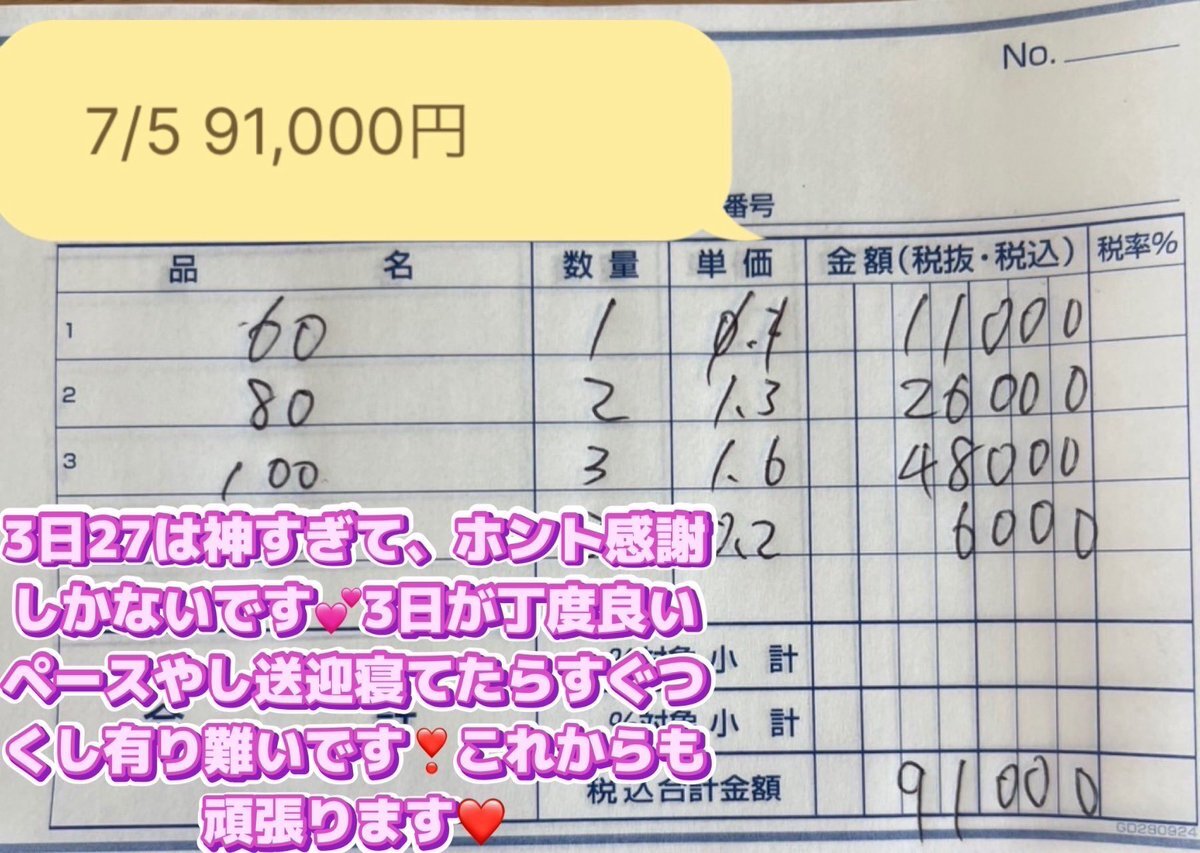 No.
7/5 91,000円
番号
品名 数量 単価 金額(税抜・税込) 税率%
1 60 1 11000
2 80 2 1.3 26000
3 100 3 1.6 48000
0.2 6000
3日27は神すぎて、ホント感謝
しかないです💕3日が丁度良い
ペースやし送迎寝てたらすぐつ
くし有り難いです❣️これからも
頑張ります❤️
%対象 小計
%対象 小計
税込合計金額 91000
GD280924